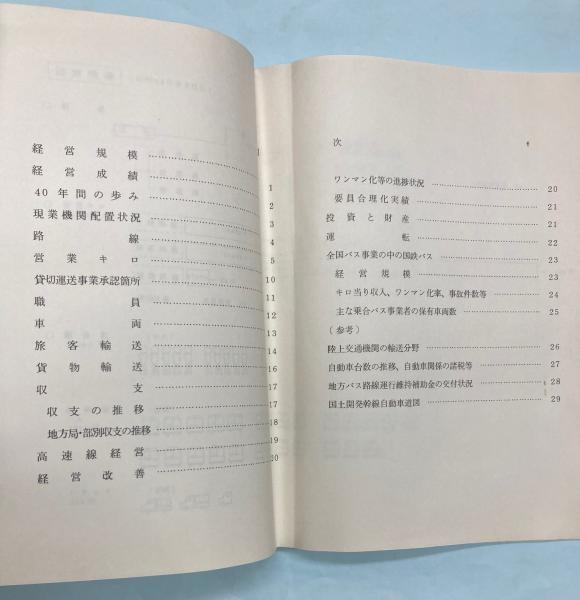 経営規模……………1
経営成績……………2
40年間の歩み……………3
現業機関配置状況……………4
路線……………5
営業キロ……………10
貸切運送事業承認箇所……………11
職員……………12
車両……………13
旅客輸送……………14
貨物輸送……………16
収支……………17
収支の推移……………17
地方局・部別収支の推移……………18
高速線経営……………19
経営改善……………20
次
ワンマン化等の進捗状況……………20
要員合理化実績……………21
投資と財産……………21
運転……………22
全国バス事業の中の国鉄バス……………23
経営規模……………23
キロ当り収入、ワンマン化率、事故件数等……………24
主な乗合バス事業者の保有車両数……………25
(参考)
陸上交通機関の輸送分野……………26
自動車台数の推移、自動車関係の諸税等……………27
地方バス路線運行維持補助金の交付状況……………28
国土開発幹線自動車道図……………29